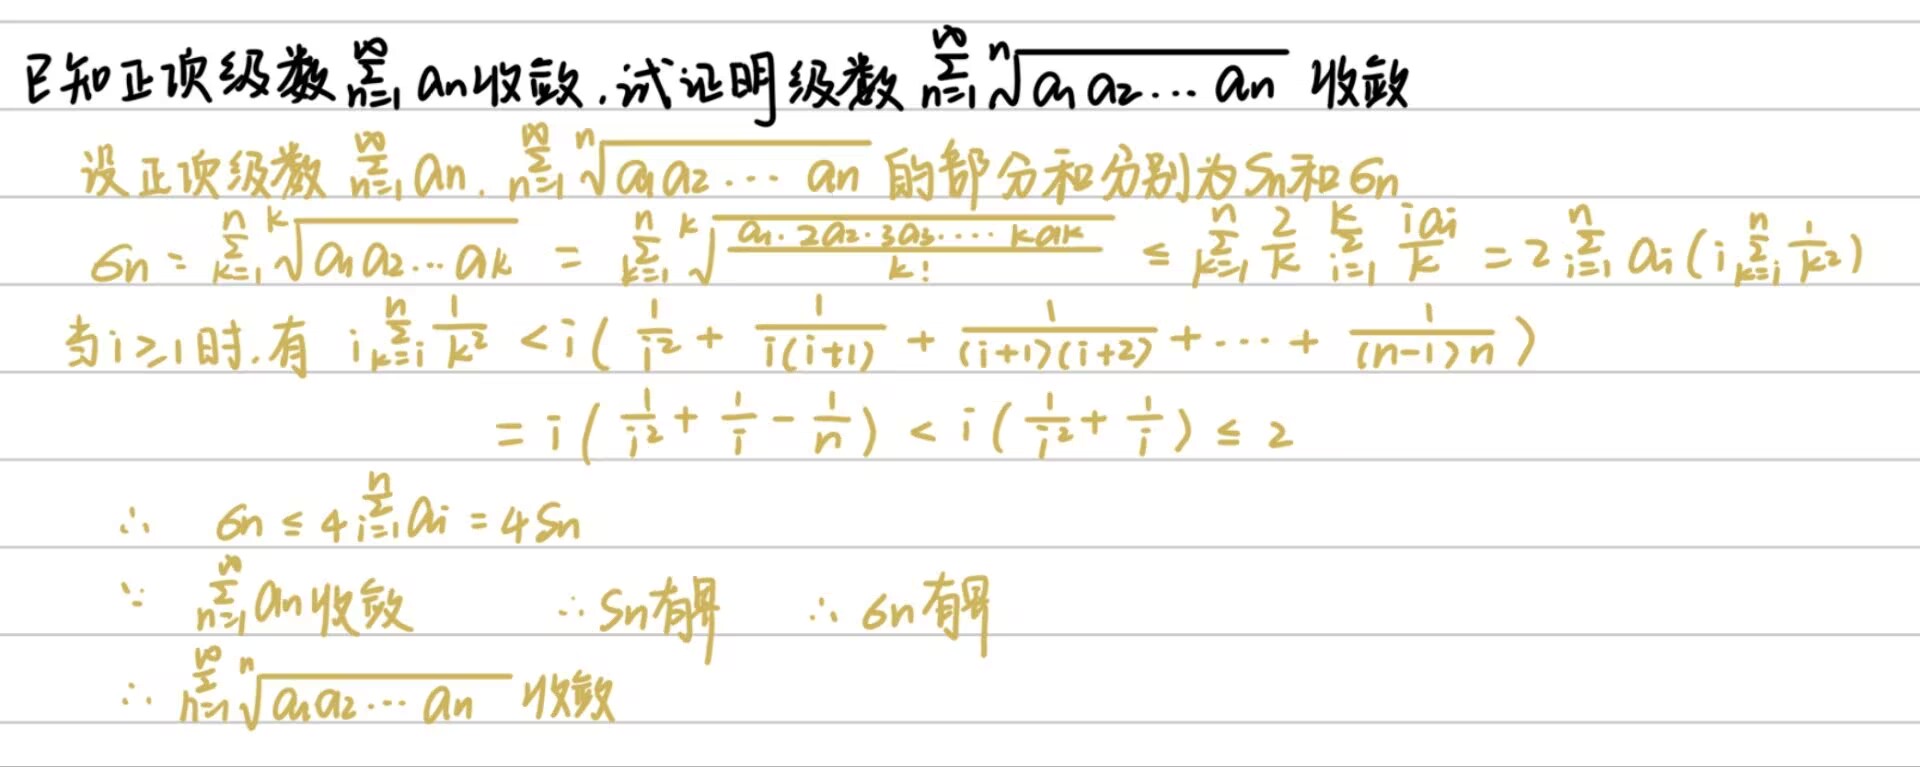 已知正项级数 $\sum_{n=1}^{\infty} a_n$ 收敛,试证明级数 $\sum_{n=1}^{\infty} \sqrt[n]{a_1 a_2 \cdots a_n}$ 收敛
设正项级数 $\sum_{n=1}^{\infty} a_n$, $\sum_{n=1}^{\infty} \sqrt[n]{a_1 a_2 \cdots a_n}$ 的部分和分别为 $S_n$ 和 $6_n$
$6_n = \sum_{k=1}^{n} \sqrt[k]{a_1 a_2 \cdots a_k} = \sum_{k=1}^{n} \sqrt[k]{\frac{a_1 \cdot 2a_2 \cdot 3a_3 \cdots k a_k}{k!}} \leq \sum_{k=1}^{n} \frac{2}{k} \sum_{i=1}^{k} \frac{i a_i}{k} = 2 \sum_{i=1}^{n} a_i ( i \sum_{k=i}^{n} \frac{1}{k^2} )$
当 $i \geq 1$ 时,有 $i \sum_{k=i}^{n} \frac{1}{k^2} < i ( \frac{1}{i^2} + \frac{1}{i(i+1)} + \frac{1}{(i+1)(i+2)} + \cdots + \frac{1}{(n-1)n} )$
$= i ( \frac{1}{i^2} + \frac{1}{i} - \frac{1}{n} ) < i ( \frac{1}{i^2} + \frac{1}{i} ) \leq 2$
∴ $6_n \leq 4 \sum_{i=1}^{n} a_i = 4 S_n$
∵ $\sum_{n=1}^{\infty} a_n$ 收敛 ∴ $S_n$ 有界 ∴ $6_n$ 有界
∴ $\sum_{n=1}^{\infty} \sqrt[n]{a_1 a_2 \cdots a_n}$ 收敛